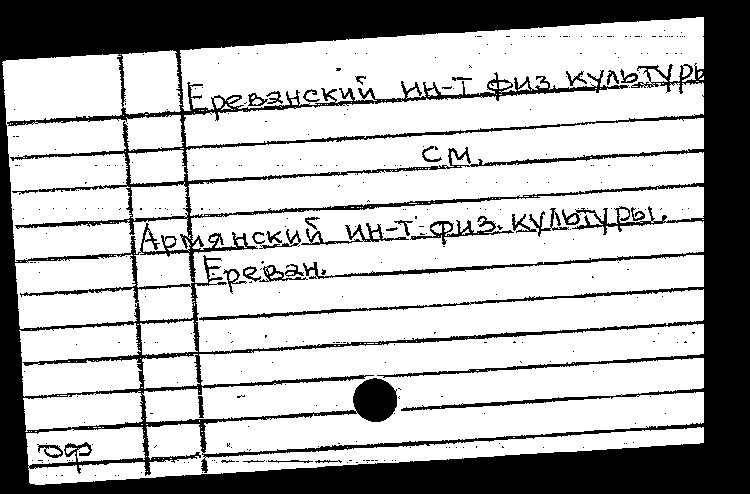 Ереванский ин-т физ. культуры
см.
Армянский ин-т физ. культуры.
Ереван.